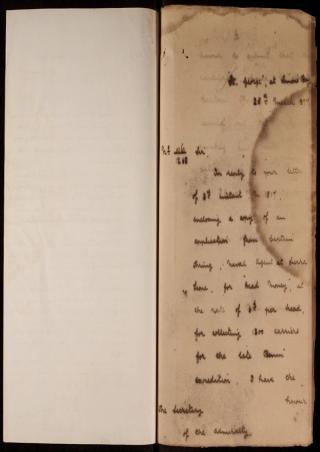 "St. George", at Simons Bay
28th March
Sir,
In reply to your letter
of 3rd instant
enclosing a copy of an
application from Captain
Naval Agent at Sierra
Leone, for "Head Money", at
the rate of per head,
for collecting 1200 carriers
for the late Benin
expedition, I have the
honour
The Secretary
of the Admiralty